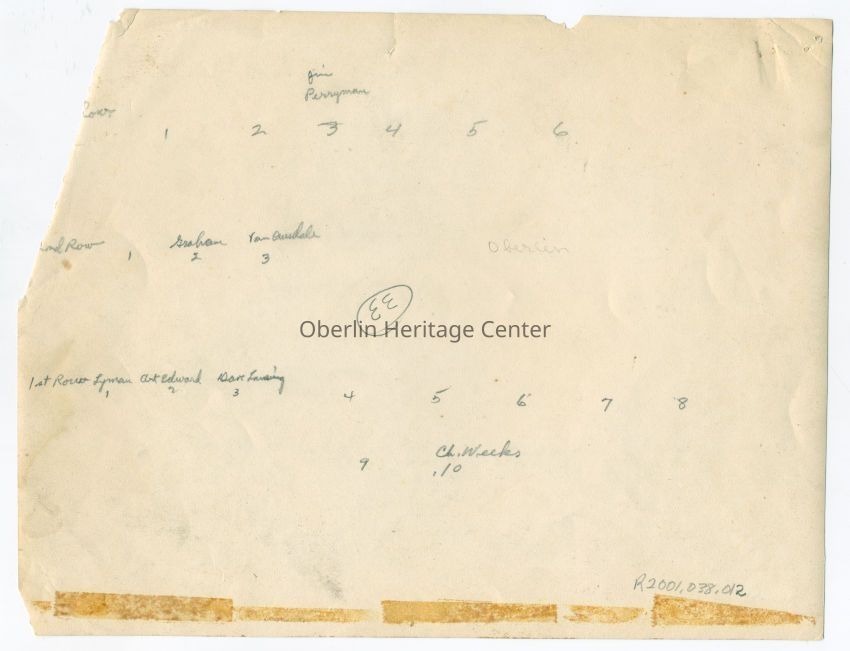 Jim
Perryman
Row
1 2 3 4 5 6
2nd Row Graham Van Ausdale
1 2 3
Oberlin
33
Oberlin Heritage Center
1st Row Lyman Art Edward Dave Lansing
1 2 3 4 5 6 7 8
Ch. Weeks
9 10
R2001.038.012